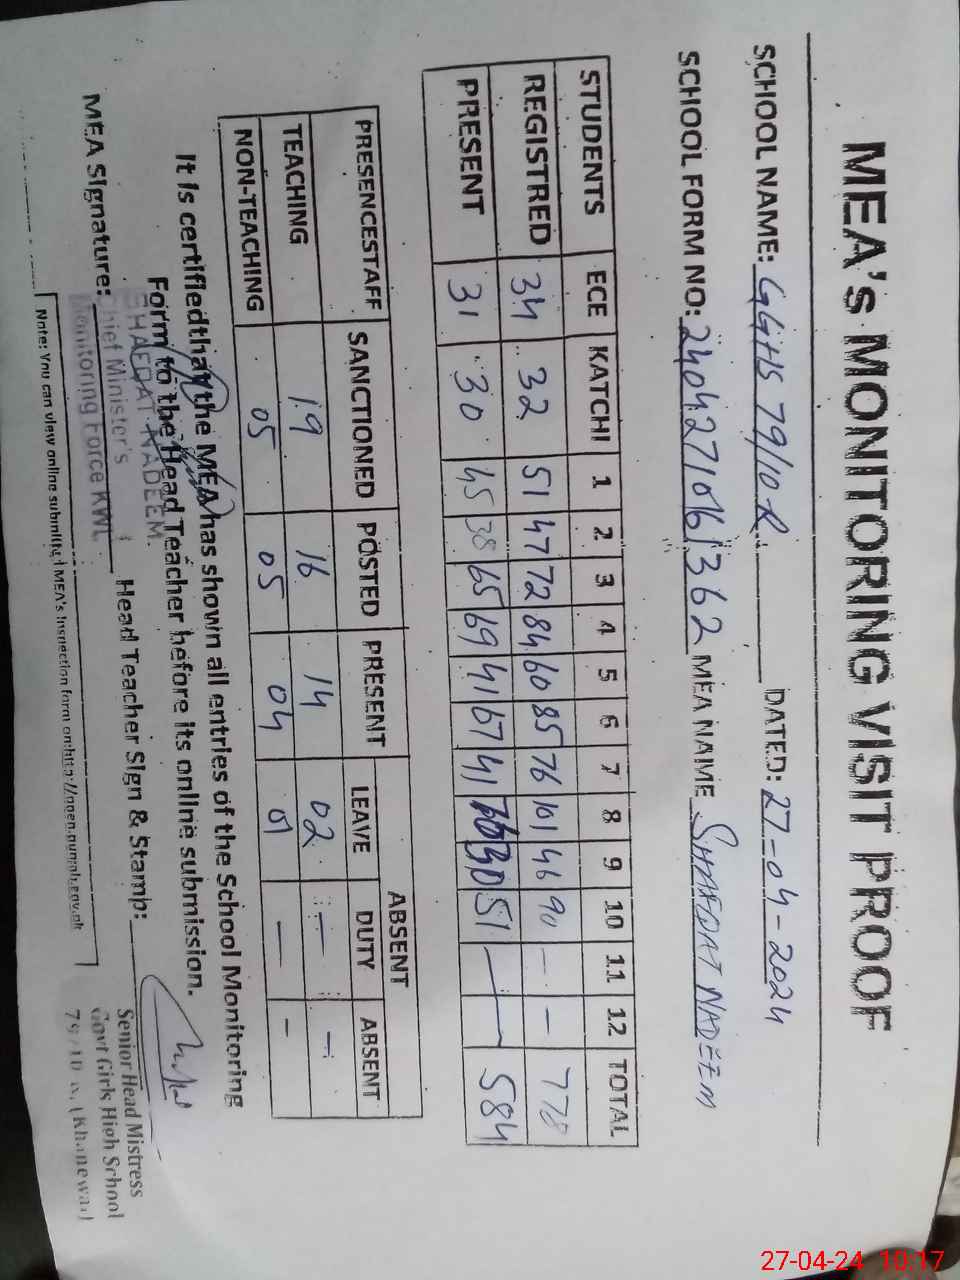 MEA's MONITORING VISIT PROOF
SCHOOL NAME: GGHS 79/10-R DATED: 27-04-2024
SCHOOL FORM NO: 2404271061362 MEA NAME SHAFQAT NADEEM
STUDENTS ECE KATCHI 1 2 3 4 5 6 7 8 9 10 11 12 TOTAL
REGISTRED 34 32 51 47 72 84 60 85 76 101 46 90 - - 778
PRESENT 31 30 45 38 65 69 41 67 41 76 30 51 - - 584
PRESENCESTAFF SANCTIONED POSTED PRESENT ABSENT
LEAVE DUTY ABSENT
TEACHING 19 16 14 02 - -
NON-TEACHING 05 05 04 01 - -
It is certifiedthat the MEA has shown all entries of the School Monitoring
Form to the Head Teacher before its online submission.
NADEEM.
Chief Minister's
Monitoring Force KWL
MEA Signature: Head Teacher Sign & Stamp:
Senior Head Mistress
Govt Girls High School
79/10 R, (Khanewal)
Note: You can view online submitted MEA's inspection form on:http://open.punjab.gov.pk
27-04-24 10:17